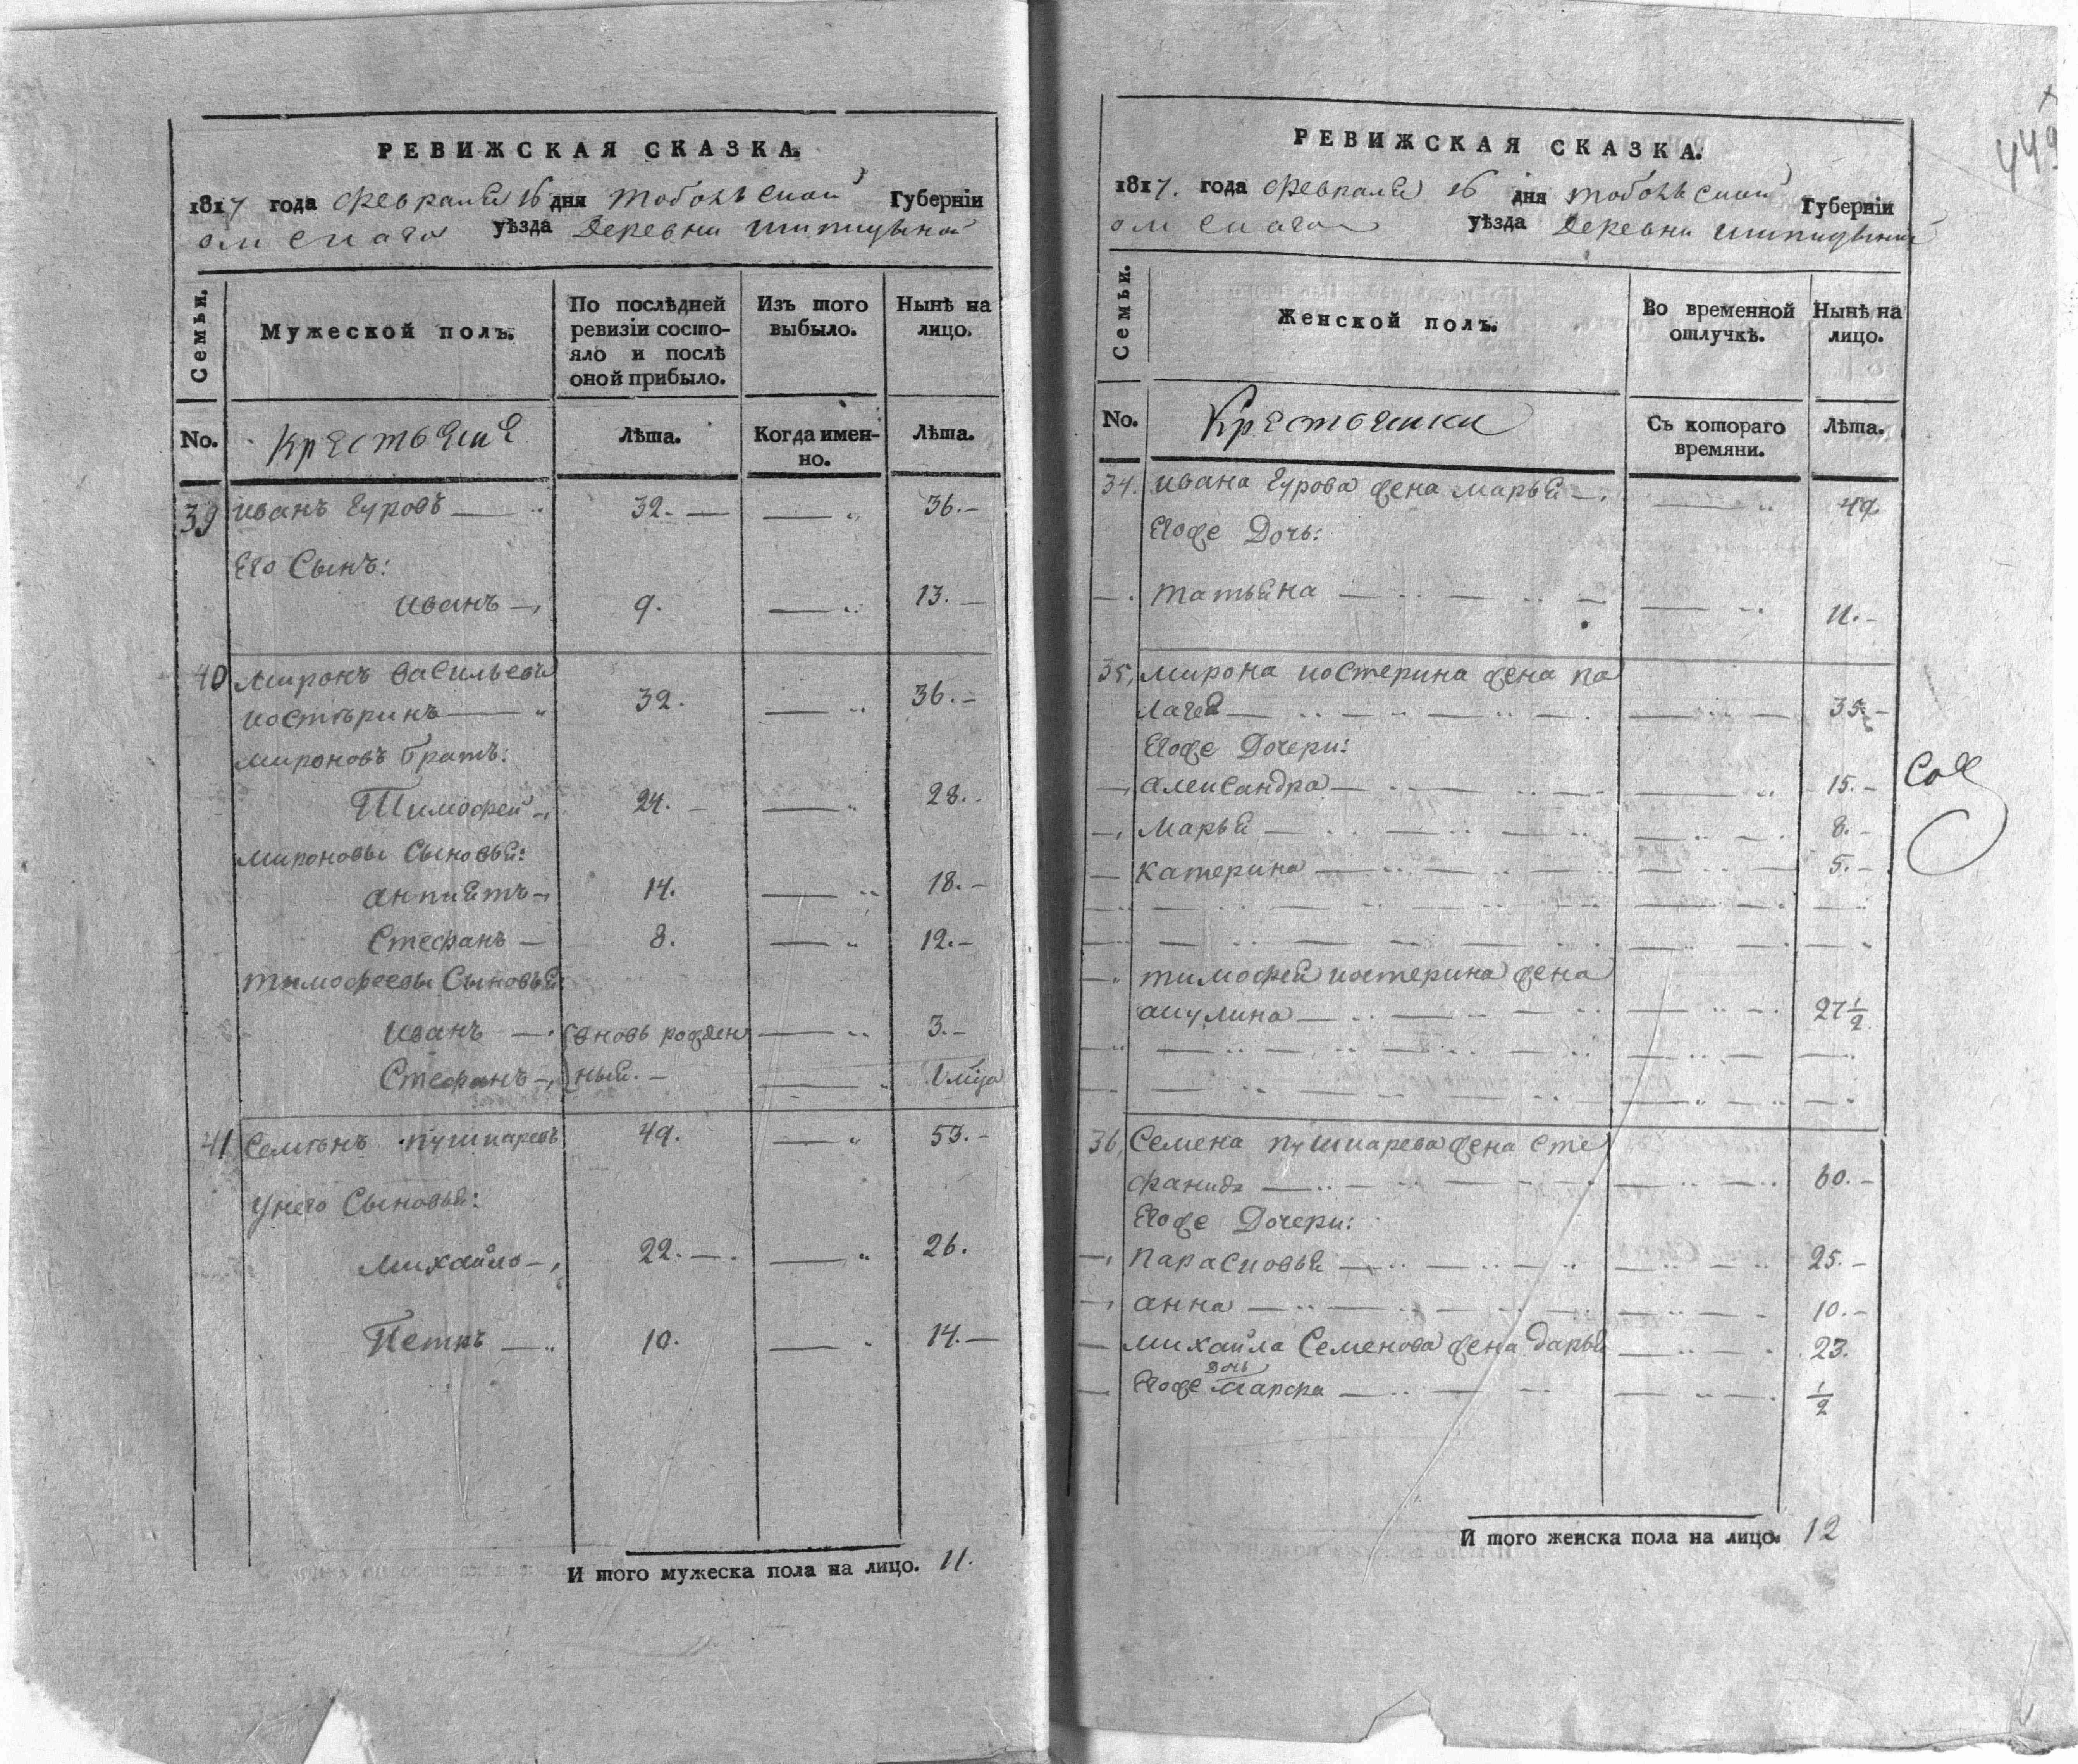 449
РЕВИЖСКАЯ СКАЗКА.
1817 года февраля 16 дня тобольской Губерніи
омскаго уѣзда деревни шипицыной
Семьи.
Мужеской полъ.
По послѣдней ревизіи состо-
яло и послѣ
оной прибыло.
Изъ того выбыло.
Нынѣ на лицо.
No.
крестьяне
Лѣта.
Когда имен-
но.
Лѣта.
39 иванъ гуровъ — 32. — — „ 36. —
Его Сынъ:
иванъ — 9. — „ 13. —
40 миронъ васильевъ
костѣринъ — „ 32. — „ 36. —
мироновъ братъ:
Тимофей — 24. — — „ 28.
мироновы сыновья:
антипъ — 14. — „ 18. —
Стефанъ — 8. — „ 12. —
тимофеевы Сыновья
иванъ — вновь рожден — „ 3. —
Стефанъ — ный. — — „ 1 мца
41 Семѣнъ пушкаревъ 49. — „ 53. —
у него Сыновья:
михайло — 22. — — „ 26.
Петръ — „ 10. — „ 14. —
И того мужеска пола на лицо. 11.
РЕВИЖСКАЯ СКАЗКА.
1817. года февраля 16 дня тобольской Губерніи
омскаго уѣзда деревни шипицыной
Семьи.
Женской полъ.
Во временной отлучкѣ.
Нынѣ на лицо.
No.
Крестьянки
Съ котораго времяни.
Лѣта.
34. ивана гурова жена марья — — „ 49
Егоже Дочь:
— татьяна — — 11. —
35, мирона костерина жена па
лагея — — 35 —
Егоже Дочери:
— александра — — 15. —
— марья — — 8. —
— катерина — — 5. —
— тимофея костерина жена
акулина — — 27 1/2
36, Семена пушкарева жена сте
фанида — — 60. —
Егоже Дочери:
— парасковья — — 25. —
— анна — — 10. —
— михайла Семенова жена дарья — 23.
дочь
— Егоже марфа — — 1/2
И того женска пола на лицо. 12